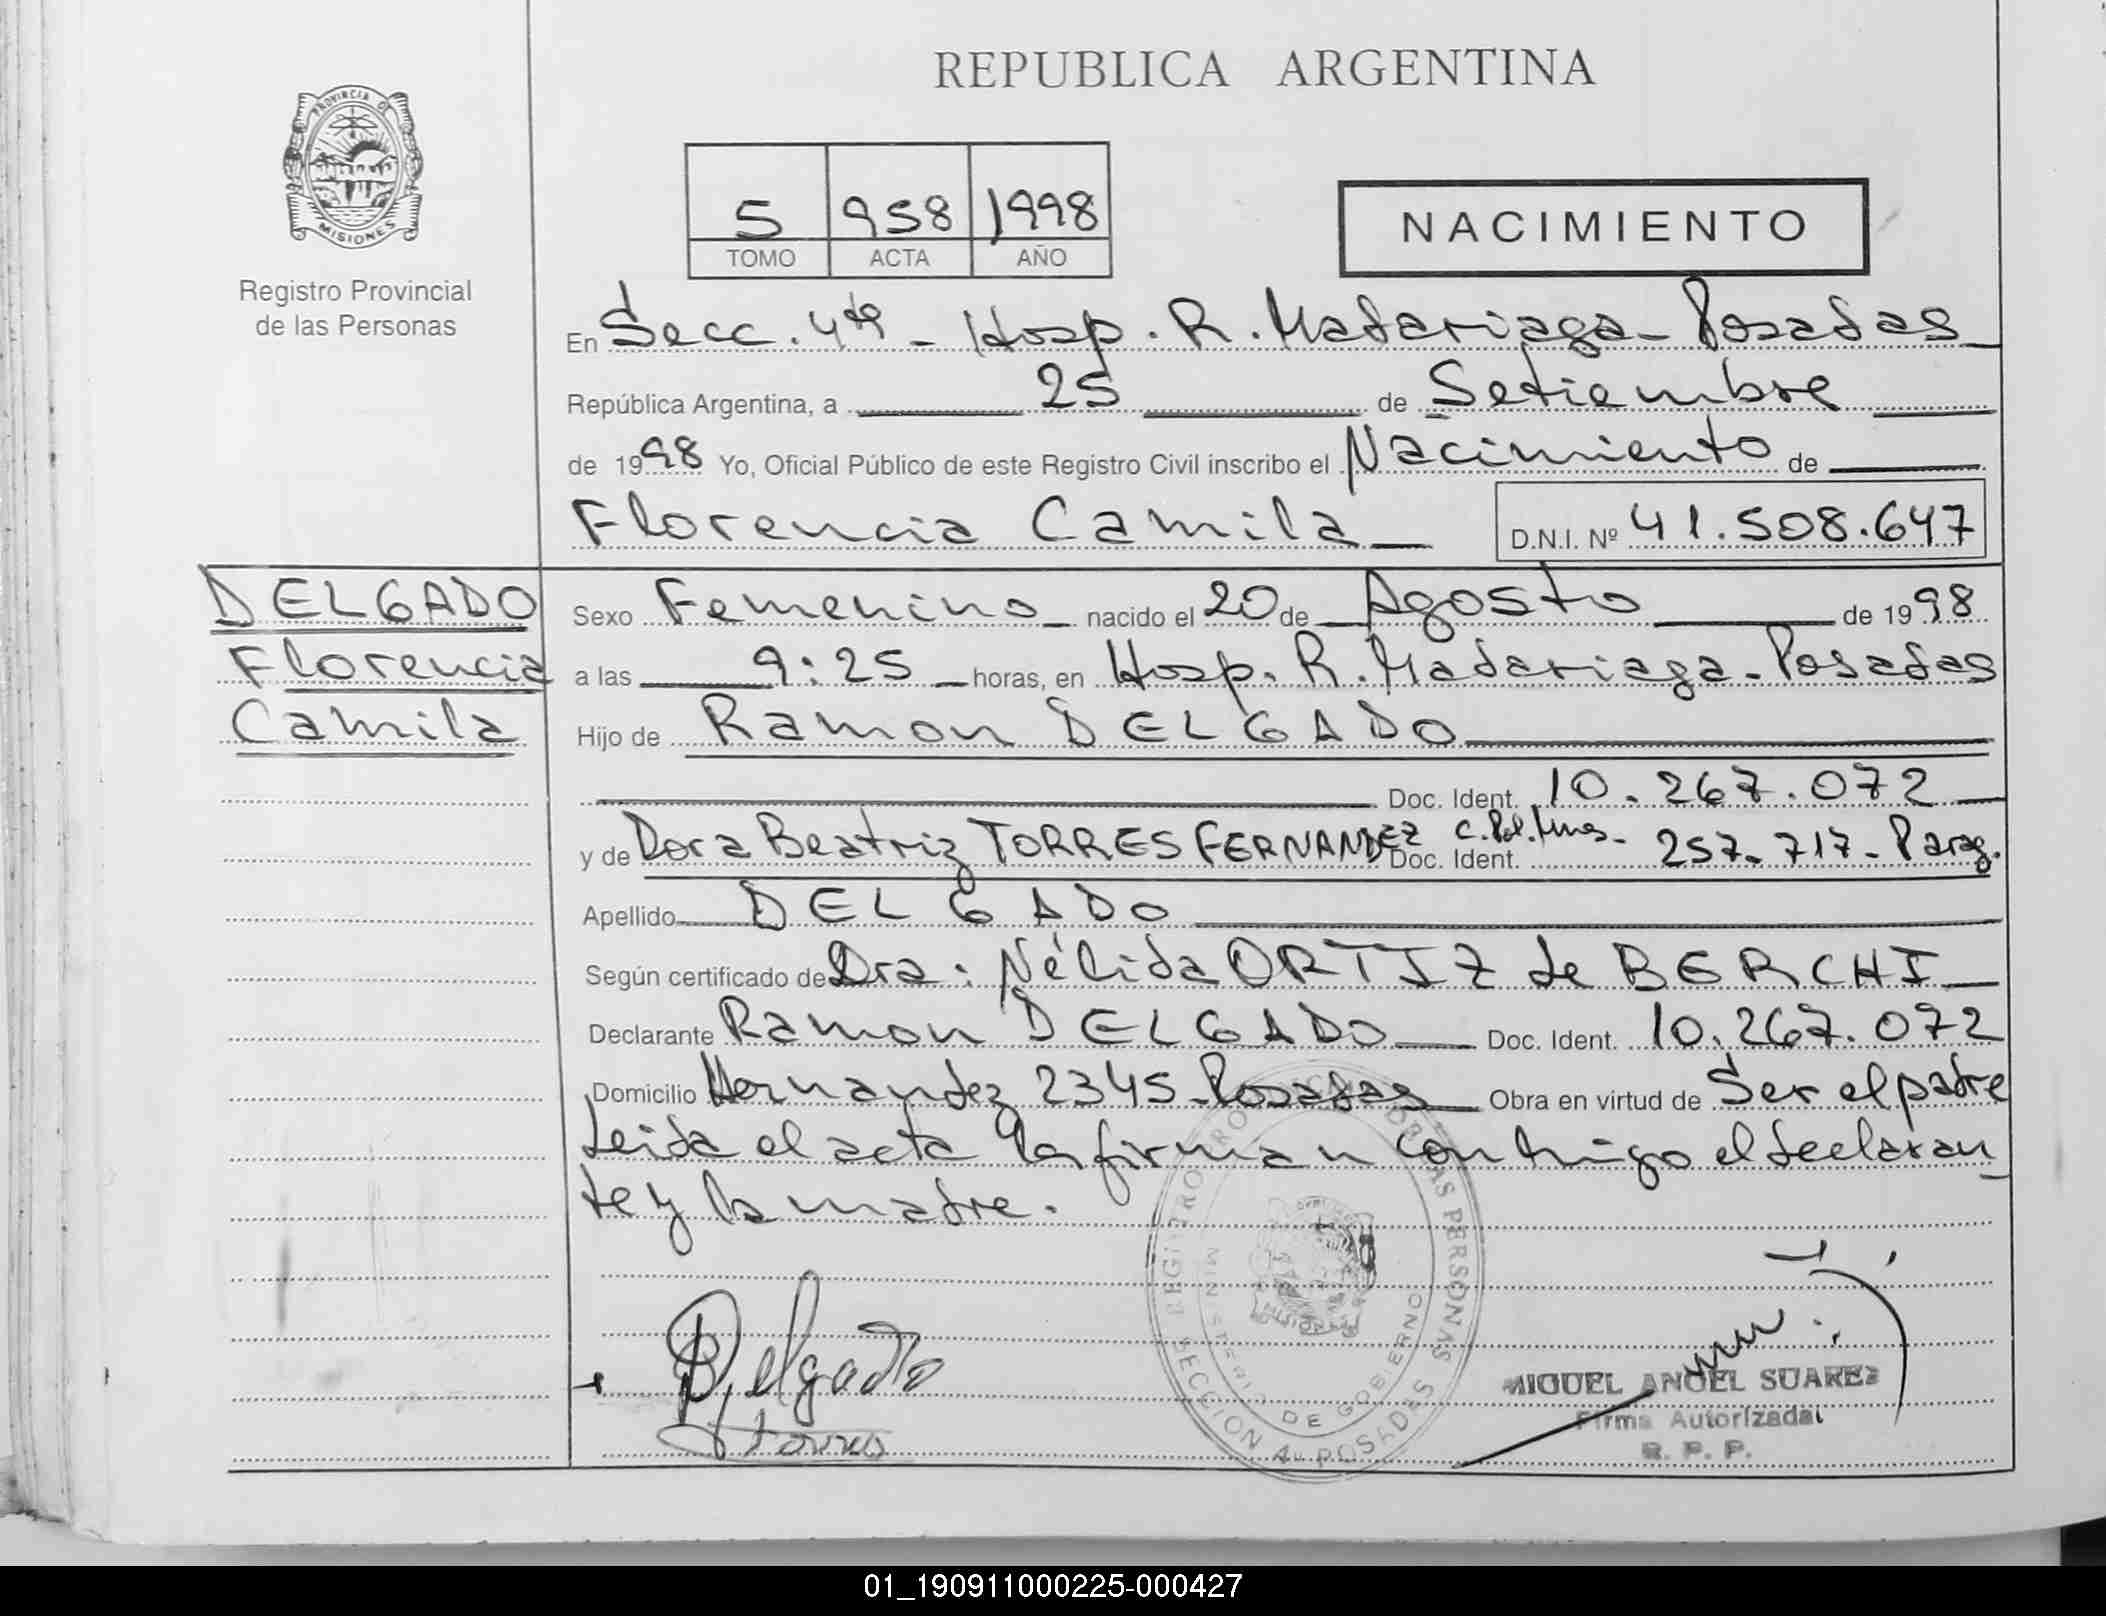 REPUBLICA ARGENTINA
PROVINCIA DE
MISIONES
Registro Provincial
de las Personas
5 958 1998
TOMO ACTA AÑO
NACIMIENTO
En Secc. 4ta - Hosp. R. Madariaga - Posadas
República Argentina, a 25 de Setiembre
de 1998 Yo, Oficial Público de este Registro Civil inscribo el Nacimiento de
Florencia Camila D.N.I. Nº 41.508.647
DELGADO
Florencia
Camila
Sexo Femenino nacido el 20 de Agosto de 1998
a las 9:25 horas, en Hosp. R. Madariaga - Posadas
Hijo de Ramon DELGADO
Doc. Ident. 10.267.072
y de Dora Beatriz TORRES FERNANDEZ Doc. Ident. C. Pol. Mnes. 257.717 - Parag.
Apellido DELGADO
Según certificado de Dra: Nélida ORTIZ de BERCHI
Declarante Ramon DELGADO Doc. Ident. 10.267.072
Domicilio Hernandez 2345 - Posadas Obra en virtud de Ser el padre
Leida el acta la firman conmigo el declaran
te y la madre.
Delgado
Torres
REGISTRO PROVINCIAL DE LAS PERSONAS
MINISTERIO DE GOBIERNO
SECCION 4a POSADAS
MIGUEL ANGEL SUAREZ
Firma Autorizada
R. P. P.
01_190911000225-000427